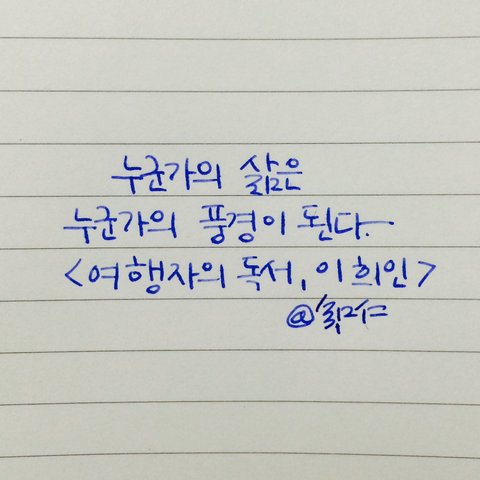 누군가의 삶은
누군가의 풍경이 된다.
<여행자의 독서, 이희인>